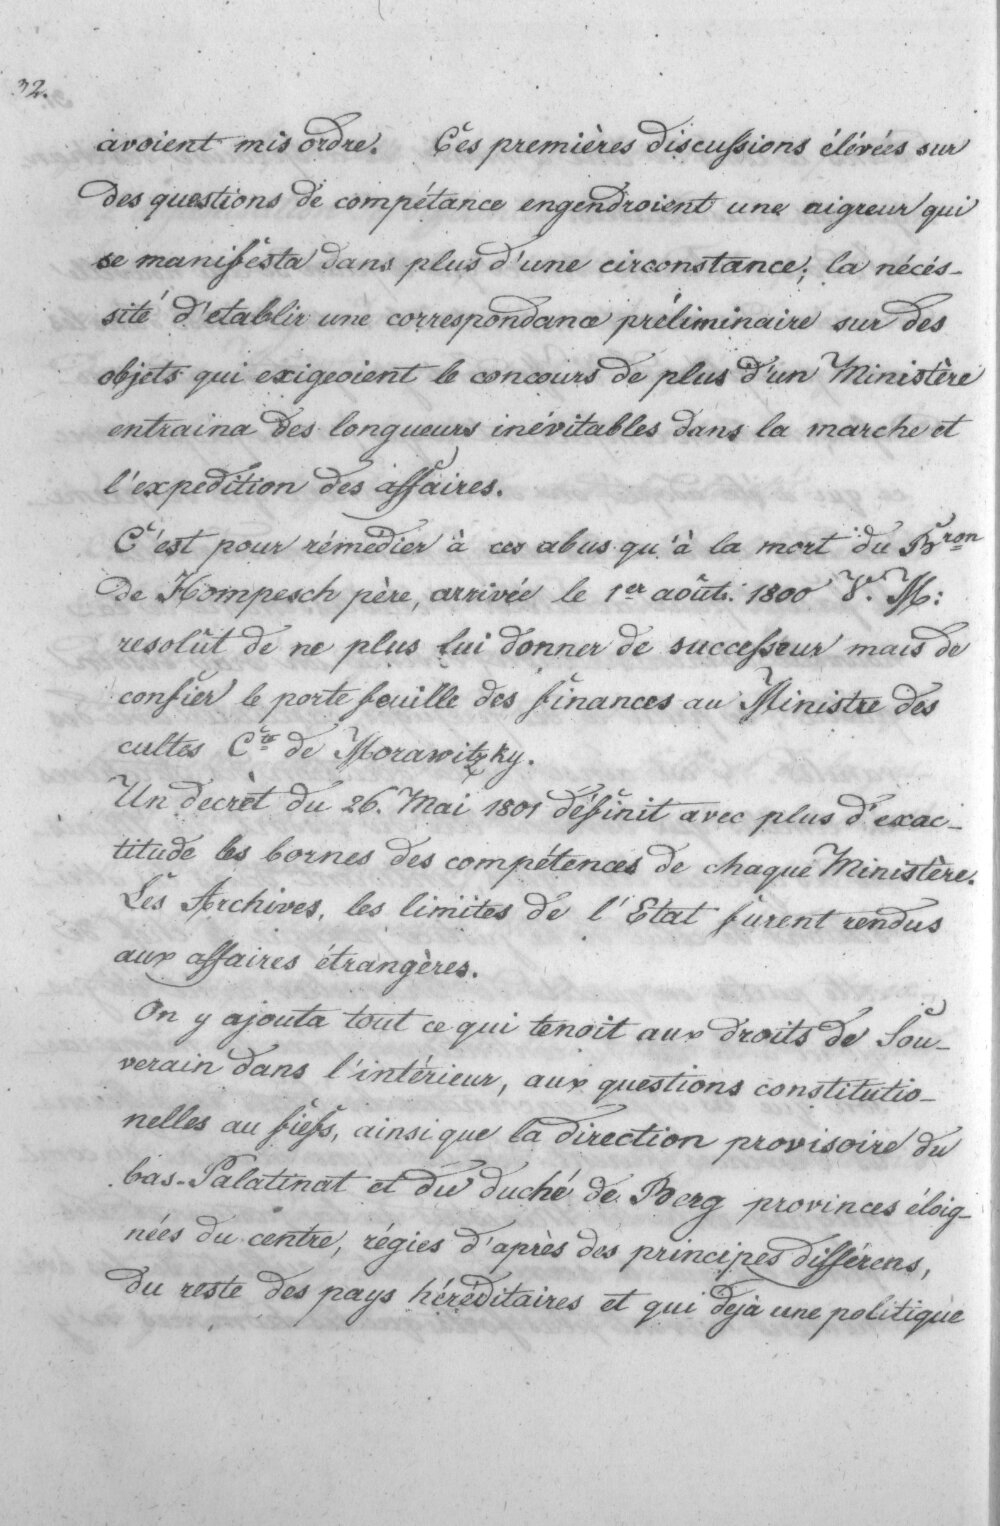 32.
avoient mis ordre. Ces premières discussions élévées sur
des questions de compétance engendroient une aigreur qui
se manifesta dans plus d'une circonstance; la nécés-
sité d'etablir une correspondance préliminaire sur des
objets qui exigeoient le concours de plus d'un Ministère
entraina des longueurs inévitables dans la marche et
l'expedition des affaires.
C'est pour rémedier à ces abus qu'à la mort du Bron
de Hompesch père, arrivée le 1er août. 1800 V. M:
resolût de ne plus lui donner de successeur mais de
confier le porte feuille des finances au Ministre des
cultes Cte de Morawitzky.
Un decrèt du 26. Mai 1801 définit avec plus d'exac-
titude les bornes des compétences de chaque Ministère.
Les Archives, les limites de l'Etat furent rendus
aux affaires étrangères.
On y ajouta tout ce qui tenoit aux droits de Sou-
verain dans l'intérieur, aux questions constitutio-
nelles au fiefs, ainsi que la direction provisoire du
bas-Palatinat et du duché de Berg provinces éloig-
nées du centre, régies d'après des principes différens,
du reste des pays héréditaires et qui dejà une politique